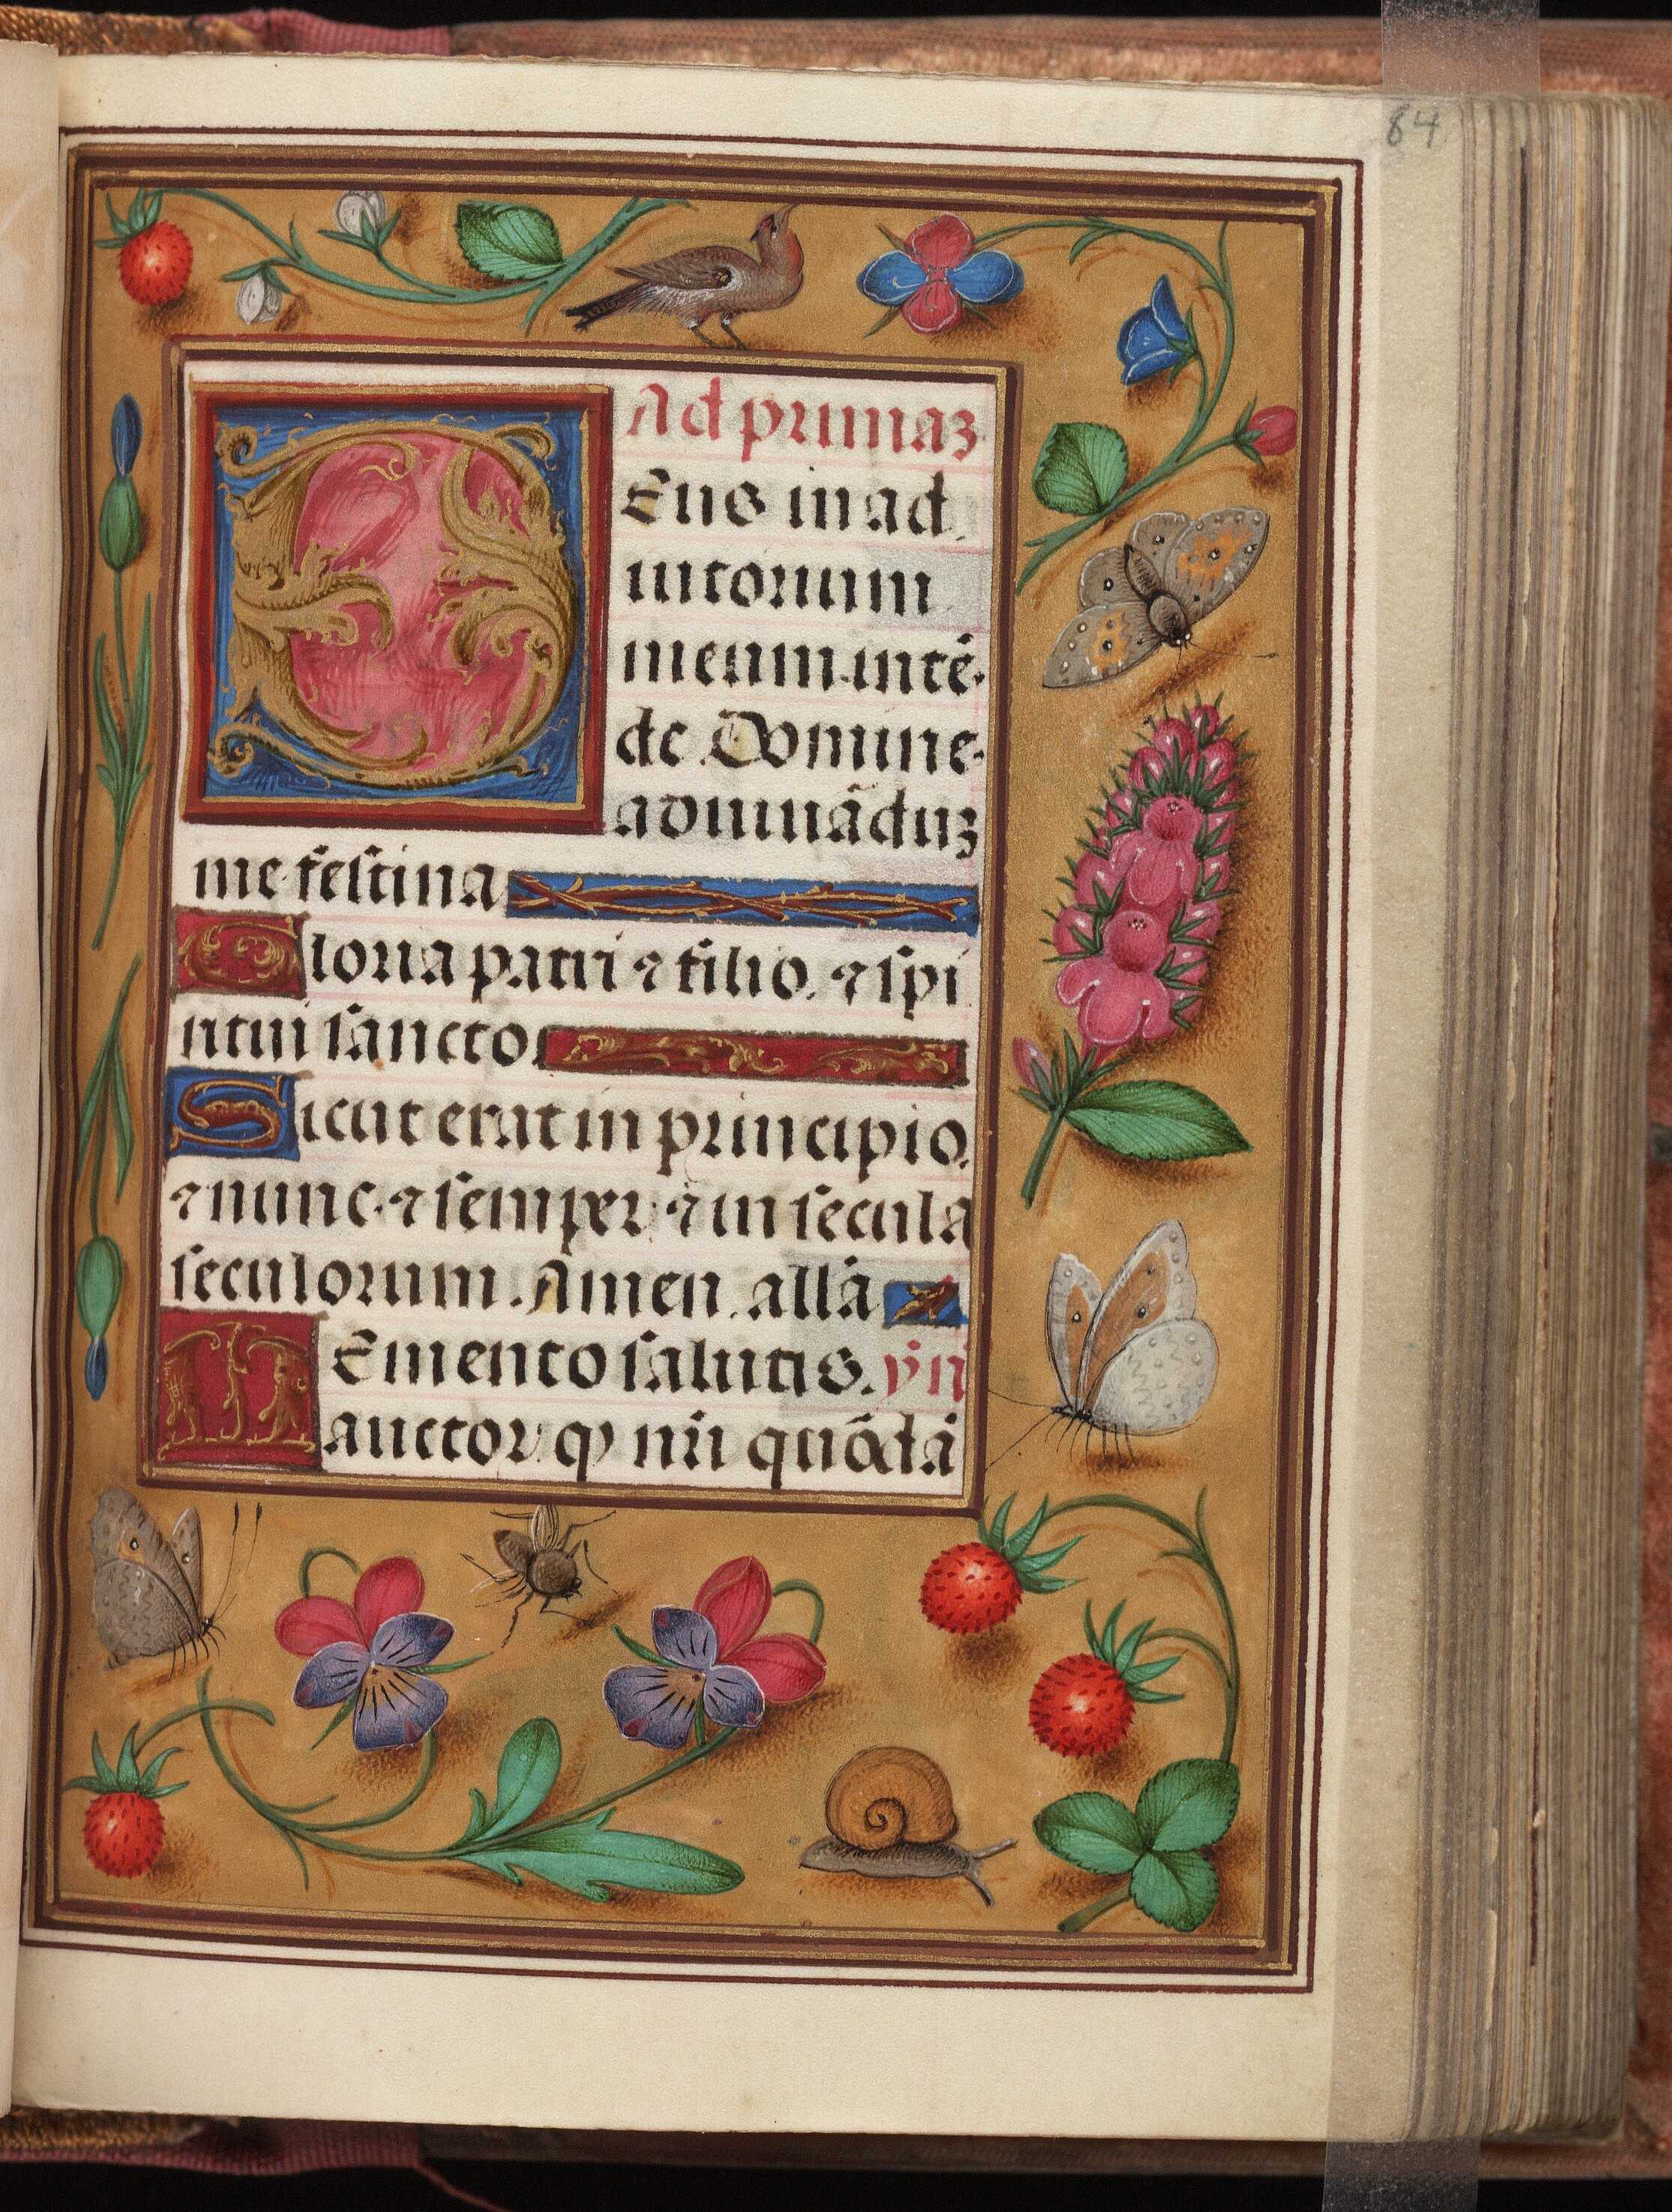 84
Ad primaȝ
DEus in ad
iutorium
meum intē-
de Domine-
adiuuāduȝ
me festina
Gloria patri ⁊ filio. ⁊ spi
ritui sancto.
Sicut erat in principio.
⁊ nunc. ⁊ semper. ⁊ in secula
seculorum. Amen. allā
MEmento salutis. ẏn̄
auctor qͥ nr̄i quōdā